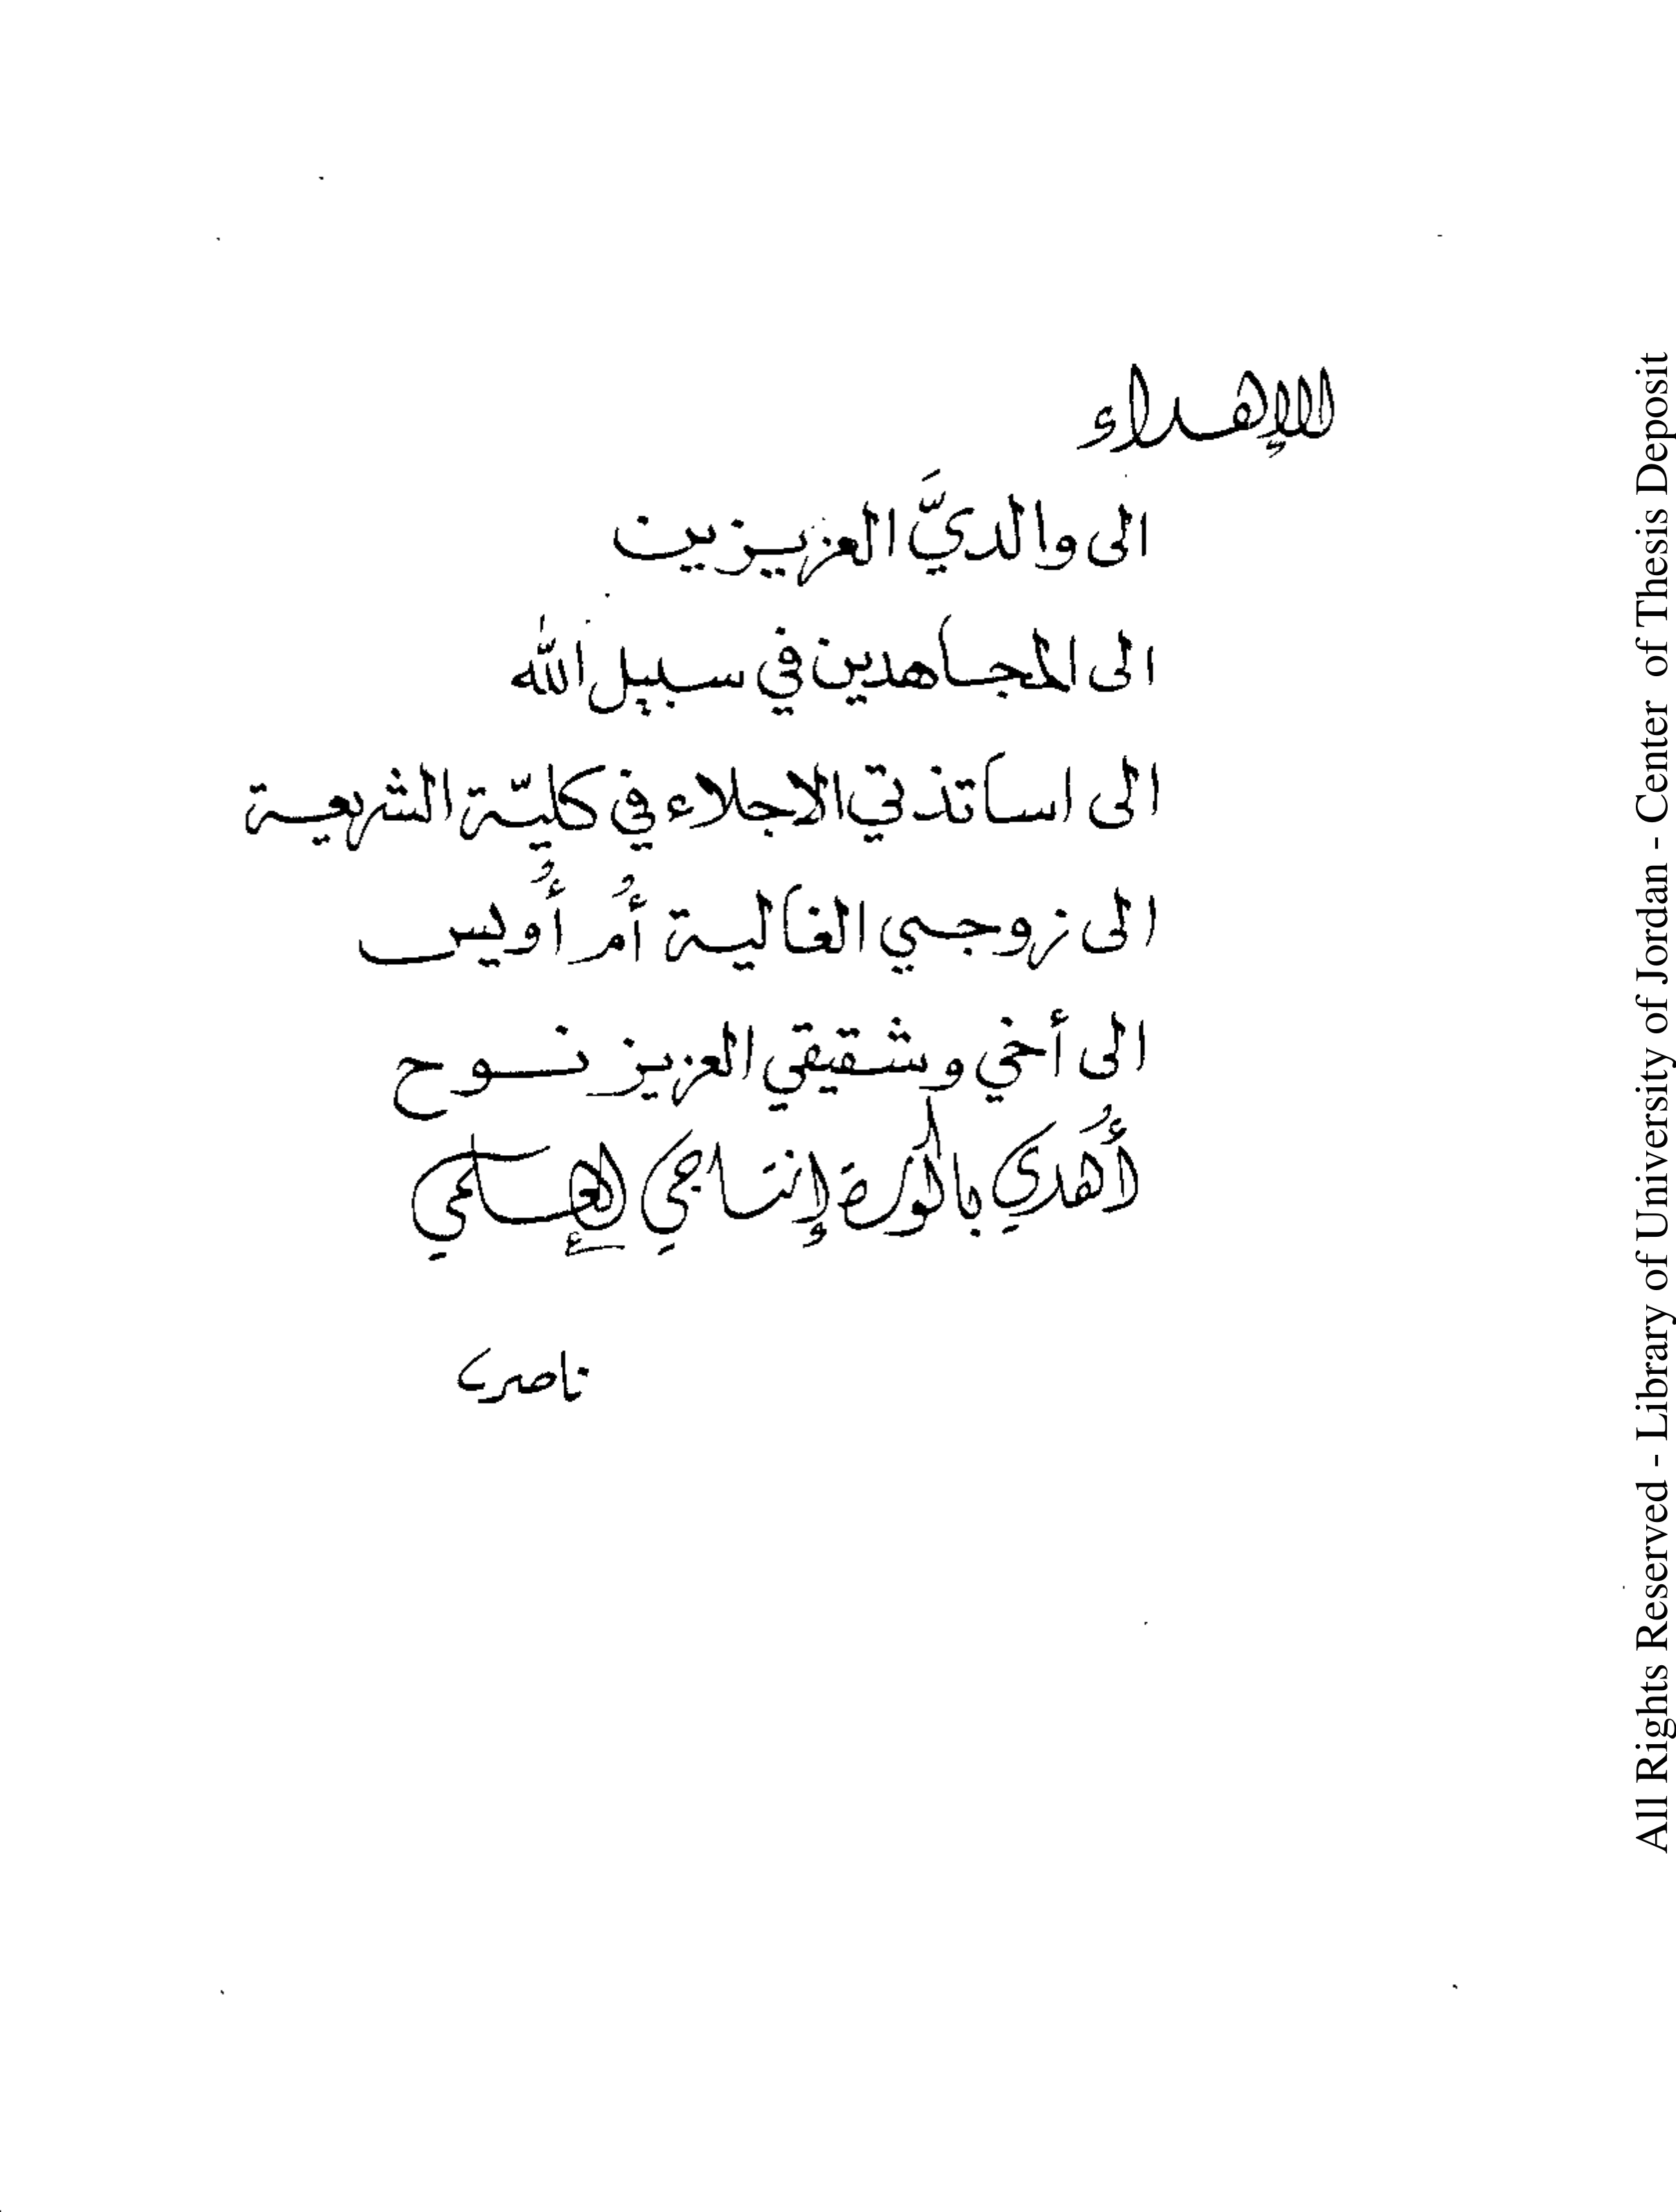 الإهداء
الى والديَّ العزيزين
الى المجاهدين في سبيل الله
الى اساتذتي الاجلاء في كليّة الشريعة
الى زوجي الغالية أُم أُويس
الى أخي وشقيقي العزيز نوح
أُهدي باكورة إنتاجي العلمي
ناصر
All Rights Reserved - Library of University of Jordan - Center of Thesis Deposit